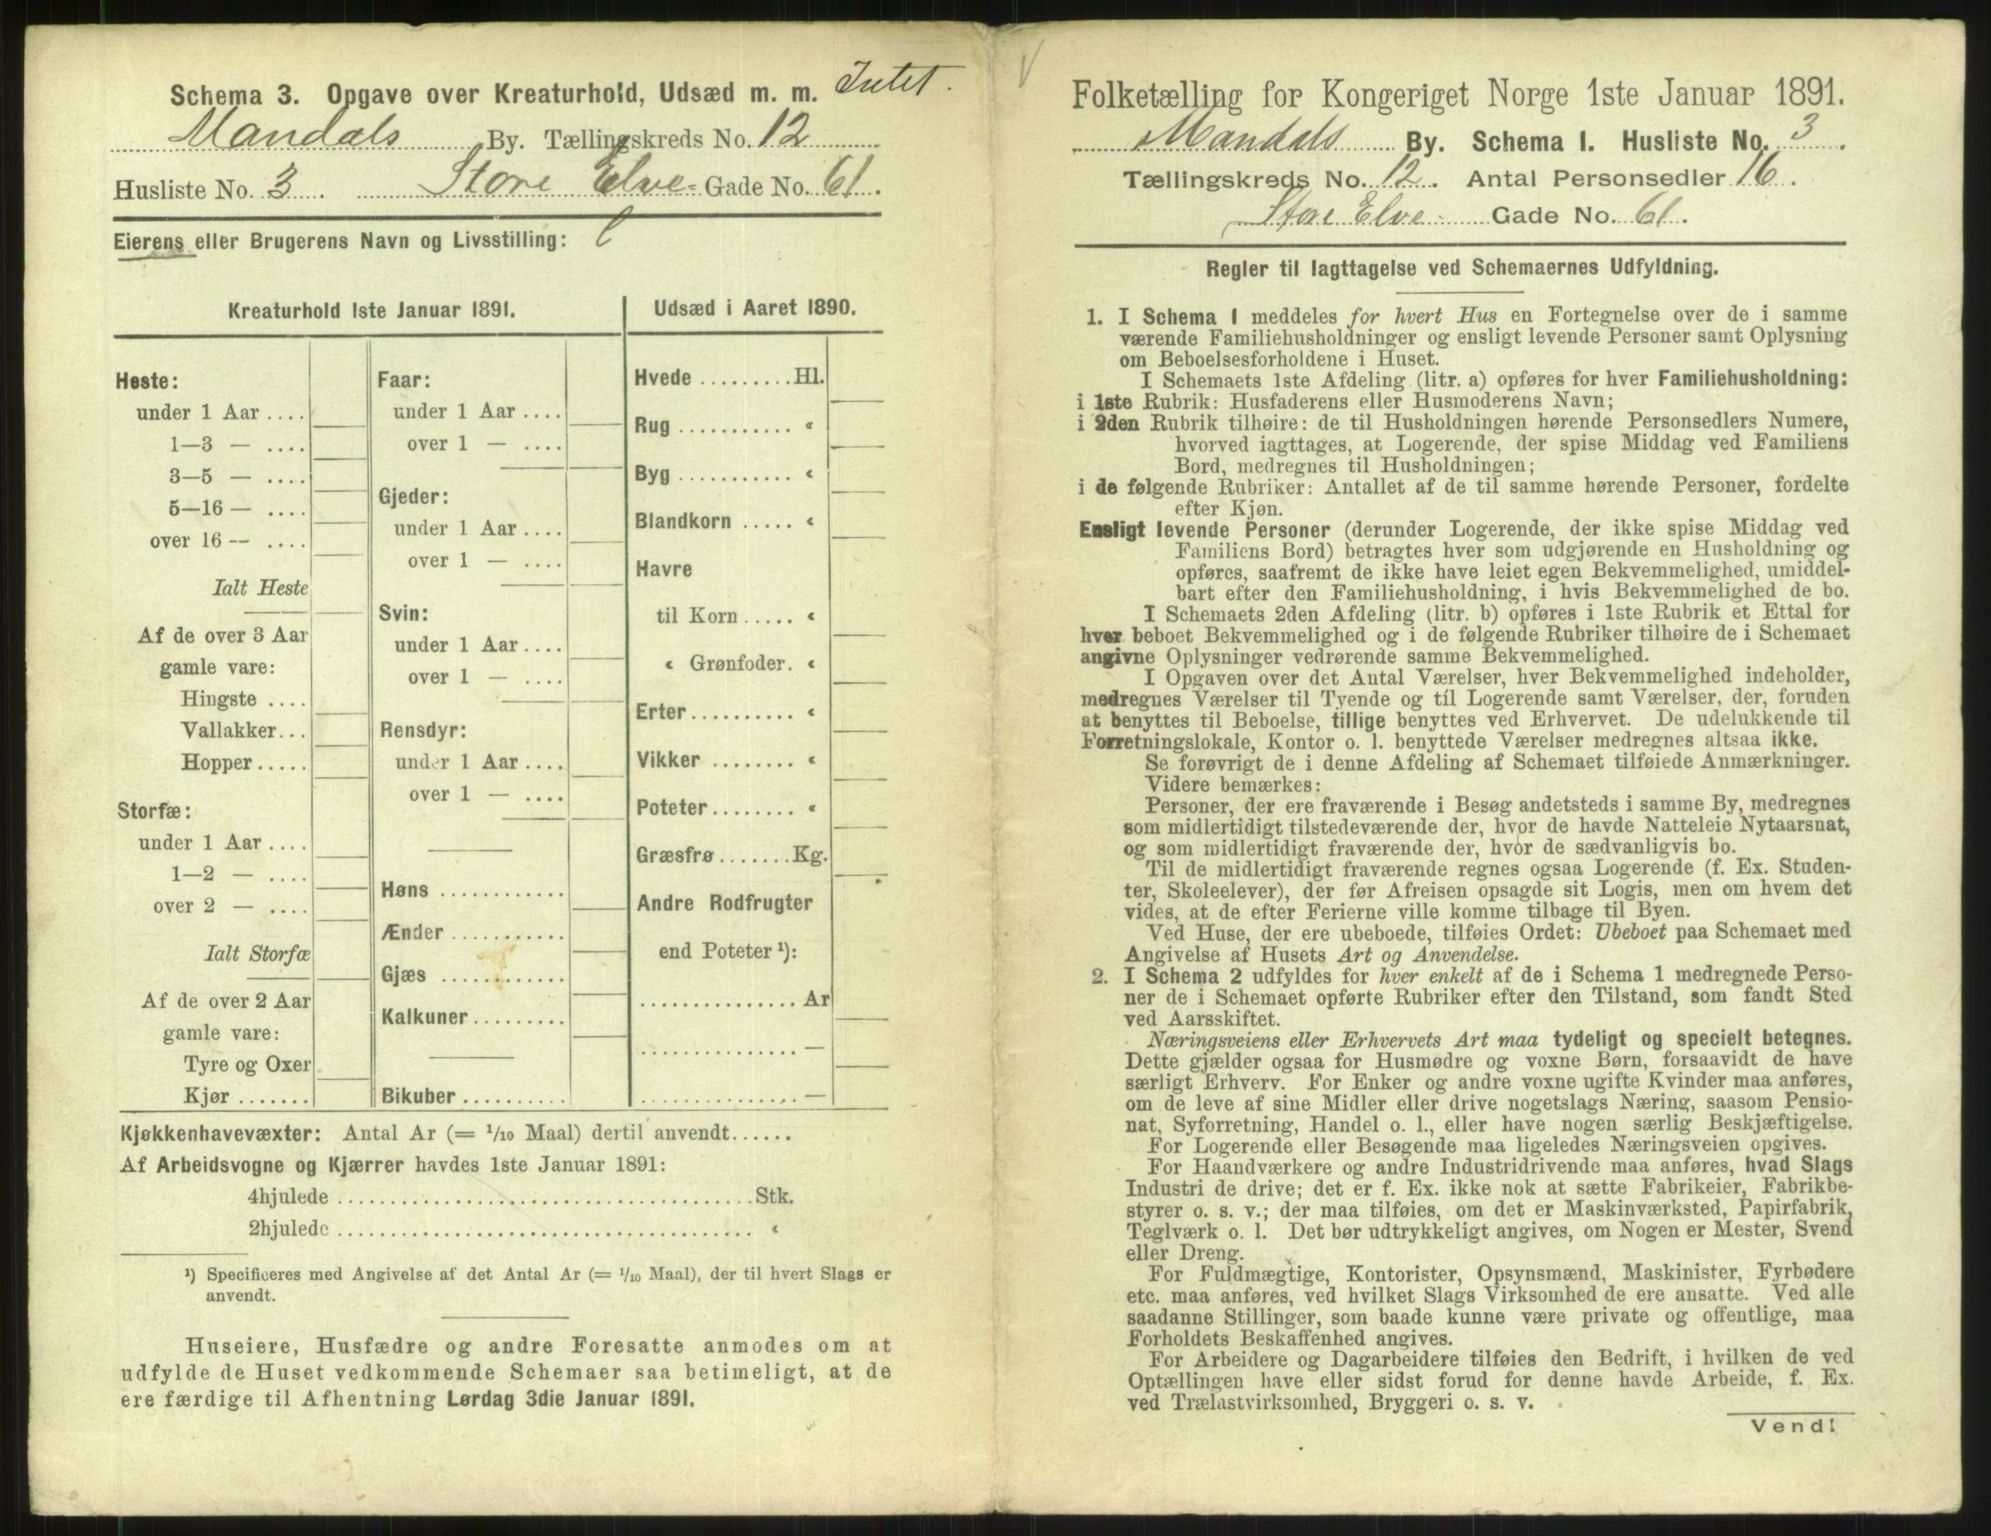 Schema 3. Opgave over Kreaturhold, Udsæd m. m. Intet.
Mandals By. Tællingskreds No. 12
Husliste No. 3 Store Elve- Gade No. 61.
Eierens eller Brugerens Navn og Livsstilling:
Kreaturhold 1ste Januar 1891.
Heste:
under 1 Aar ....
1—3 — ....
3—5 — ....
5—16 — ....
over 16 — ....
Ialt Heste
Af de over 3 Aar
gamle vare:
Hingste ....
Vallakker...
Hopper.....
Storfæ:
under 1 Aar ....
1—2 — ....
over 2 — ....
Ialt Storfæ
Af de over 2 Aar
gamle vare:
Tyre og Oxer
Kjør .......
Faar:
under 1 Aar ....
over 1 — ....
Gjeder:
under 1 Aar ....
over 1 — ....
Svin:
under 1 Aar ....
over 1 — ....
Rensdyr:
under 1 Aar ....
over 1 — ....
Høns ............
Ænder ...........
Gjæs ............
Kalkuner.........
Bikuber ..........
Udsæd i Aaret 1890.
Hvede .........Hl.
Rug ........... «
Byg ........... «
Blandkorn ..... «
Havre
til Korn ..... «
« Grønfoder. «
Erter.......... «
Vikker ........ «
Poteter ........ «
Græsfrø .......Kg.
Andre Rodfrugter
end Poteter ¹):
............... Ar
............... —
............... —
Kjøkkenhavevæxter: Antal Ar (= 1/10 Maal) dertil anvendt......
Af Arbeidsvogne og Kjærrer havdes 1ste Januar 1891:
4hjulede ....................................... Stk.
2hjulede ....................................... «
¹) Specificeres med Angivelse af det Antal Ar (= 1/10 Maal), der til hvert Slags er
anvendt.
Huseiere, Husfædre og andre Foresatte anmodes om at
udfylde de Huset vedkommende Schemaer saa betimeligt, at de
ere færdige til Afhentning Lørdag 3die Januar 1891.
Folketælling for Kongeriget Norge 1ste Januar 1891.
Mandals By. Schema 1. Husliste No. 3.
Tællingskreds No. 12. Antal Personsedler 16.
Store Elve- Gade No. 61.
Regler til Iagttagelse ved Schemaernes Udfyldning.
1. I Schema 1 meddeles for hvert Hus en Fortegnelse over de i samme
værende Familiehusholdninger og ensligt levende Personer samt Oplysning
om Beboelsesforholdene i Huset.
I Schemaets 1ste Afdeling (litr. a) opføres for hver Familiehusholdning:
i 1ste Rubrik: Husfaderens eller Husmoderens Navn;
i 2den Rubrik tilhøire: de til Husholdningen hørende Personsedlers Numere,
hvorved iagttages, at Logerende, der spise Middag ved Familiens
Bord, medregnes til Husholdningen;
i de følgende Rubriker: Antallet af de til samme hørende Personer, fordelte
efter Kjøn.
Ensligt levende Personer (derunder Logerende, der ikke spise Middag ved
Familiens Bord) betragtes hver som udgjørende en Husholdning og
opføres, saafremt de ikke have leiet egen Bekvemmelighed, umiddel-
bart efter den Familiehusholdning, i hvis Bekvemmelighed de bo.
I Schemaets 2den Afdeling (litr. b) opføres i 1ste Rubrik et Ettal for
hver beboet Bekvemmelighed og i de følgende Rubriker tilhøire de i Schemaet
angivne Oplysninger vedrørende samme Bekvemmelighed.
I Opgaven over det Antal Værelser, hver Bekvemmelighed indeholder,
medregnes Værelser til Tyende og til Logerende samt Værelser, der, foruden
at benyttes til Beboelse, tillige benyttes ved Erhvervet. De udelukkende til
Forretningslokale, Kontor o. l. benyttede Værelser medregnes altsaa ikke.
Se forøvrigt de i denne Afdeling af Schemaet tilføiede Anmærkninger.
Videre bemærkes:
Personer, der ere fraværende i Besøg andetsteds i samme By, medregnes
som midlertidigt tilstedeværende der, hvor de havde Natteleie Nytaarsnat,
og som midlertidigt fraværende der, hvor de sædvanligvis bo.
Til de midlertidigt fraværende regnes ogsaa Logerende (f. Ex. Studen-
ter, Skoleelever), der før Afreisen opsagde sit Logis, men om hvem det
vides, at de efter Ferierne ville komme tilbage til Byen.
Ved Huse, der ere ubeboede, tilføies Ordet: Ubeboet paa Schemaet med
Angivelse af Husets Art og Anvendelse.
2. I Schema 2 udfyldes for hver enkelt af de i Schema 1 medregnede Perso-
ner de i Schemaet opførte Rubriker efter den Tilstand, som fandt Sted
ved Aarsskiftet.
Næringsveiens eller Erhvervets Art maa tydeligt og specielt betegnes.
Dette gjælder ogsaa for Husmødre og voxne Børn, forsaavidt de have
særligt Erhverv. For Enker og andre voxne ugifte Kvinder maa anføres,
om de leve af sine Midler eller drive nogetslags Næring, saasom Pensio-
nat, Syforretning, Handel o. l., eller have nogen særlig Beskjæftigelse.
For Logerende eller Besøgende maa ligeledes Næringsveien opgives.
For Haandværkere og andre Industridrivende maa anføres, hvad Slags
Industri de drive; det er f. Ex. ikke nok at sætte Fabrikeier, Fabrikbe-
styrer o. s. v.; der maa tilføies, om det er Maskinværksted, Papirfabrik,
Teglværk o. l. Det bør udtrykkeligt angives, om Nogen er Mester, Svend
eller Dreng.
For Fuldmægtige, Kontorister, Opsynsmænd, Maskinister, Fyrbødere
etc. maa anføres, ved hvilket Slags Virksomhed de ere ansatte. Ved alle
saadanne Stillinger, som baade kunne være private og offentlige, maa
Forholdets Beskaffenhed angives.
For Arbeidere og Dagarbeidere tilføies den Bedrift, i hvilken de ved
Optællingen have eller sidst forud for denne havde Arbeide, f. Ex.
ved Trælastvirksomhed, Bryggeri o. s. v.
Vend!